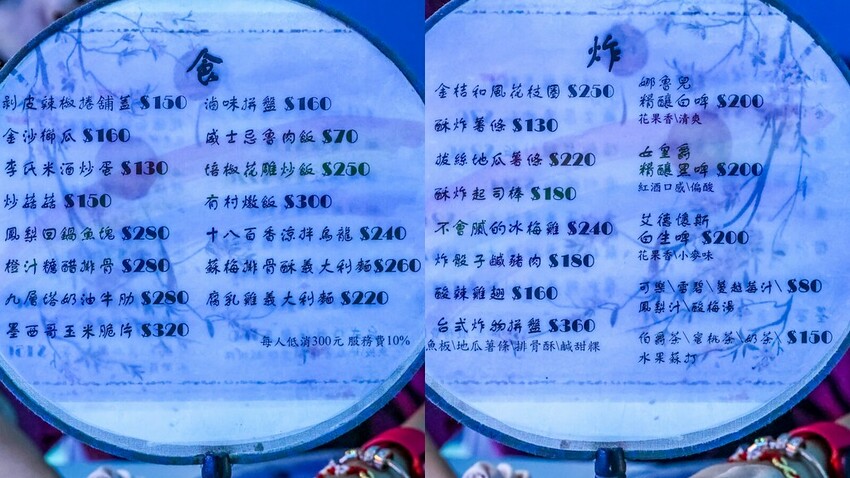 食
剝皮辣椒捲舖蓋 $150
金沙鄉瓜 $160
李氏米酒炒蛋 $130
炒菇菇 $150
鳳梨回鍋魚塊 $280
橙汁糖醋排骨 $280
九層塔奶油牛肋 $280
墨西哥玉米脆片 $320
滷味拼盤 $160
威士忌魯肉飯 $70
培椒花雕炒飯 $250
有村燉飯 $300
十八百香涼拌烏龍 $240
蘇梅排骨酥義大利麵 $260
腐乳雞義大利麵 $220
每人低消300元 服務費10%
炸
金桔和風花枝圈 $250
酥炸薯條 $130
拔絲地瓜薯條 $220
酥炸起司棒 $180
不會膩的冰梅雞 $240
炸骰子鹹豬肉 $180
酸辣雞翅 $160
台式炸物拼盤 $360
魚板\地瓜薯條\排骨酥\鹹甜粿
娜魯兒
精釀白啤 $200
花果香\清爽
女皇爵
精釀黑啤 $200
紅酒口感\偏酸
艾德懷斯
白生啤 $200
花果香\小麥味
可樂\雪碧\蔓越莓汁\ $80
鳳梨汁\酸梅湯
伯爵茶\蜜桃茶\奶茶\ $150
水果蘇打